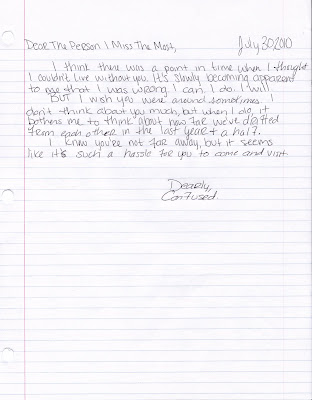 Dear The Person I Miss The Most,
July 30 2010
I think there was a point in time when I thought
I couldn't live without you. It's slowly becoming apparent
to me that I was wrong. I can. I do. I will.
But I wish you were around sometimes. I
don't think about you much, but when I do, it
bothers me to think about how far we've drifted
from each other in the last year & a half.
I know you're not far away, but it seems
like it's such a hassle for you to come and visit.
Dearly,
Confused.